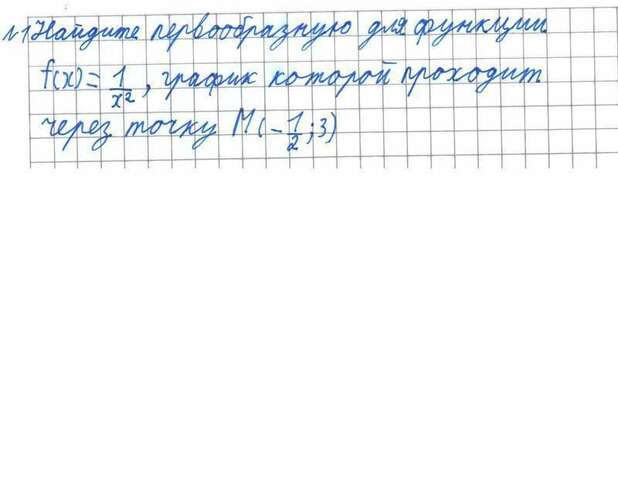 №1 Найдите первообразную для функции
f(x) = 1/x², график которой проходит
через точку M(-1/2; 3)